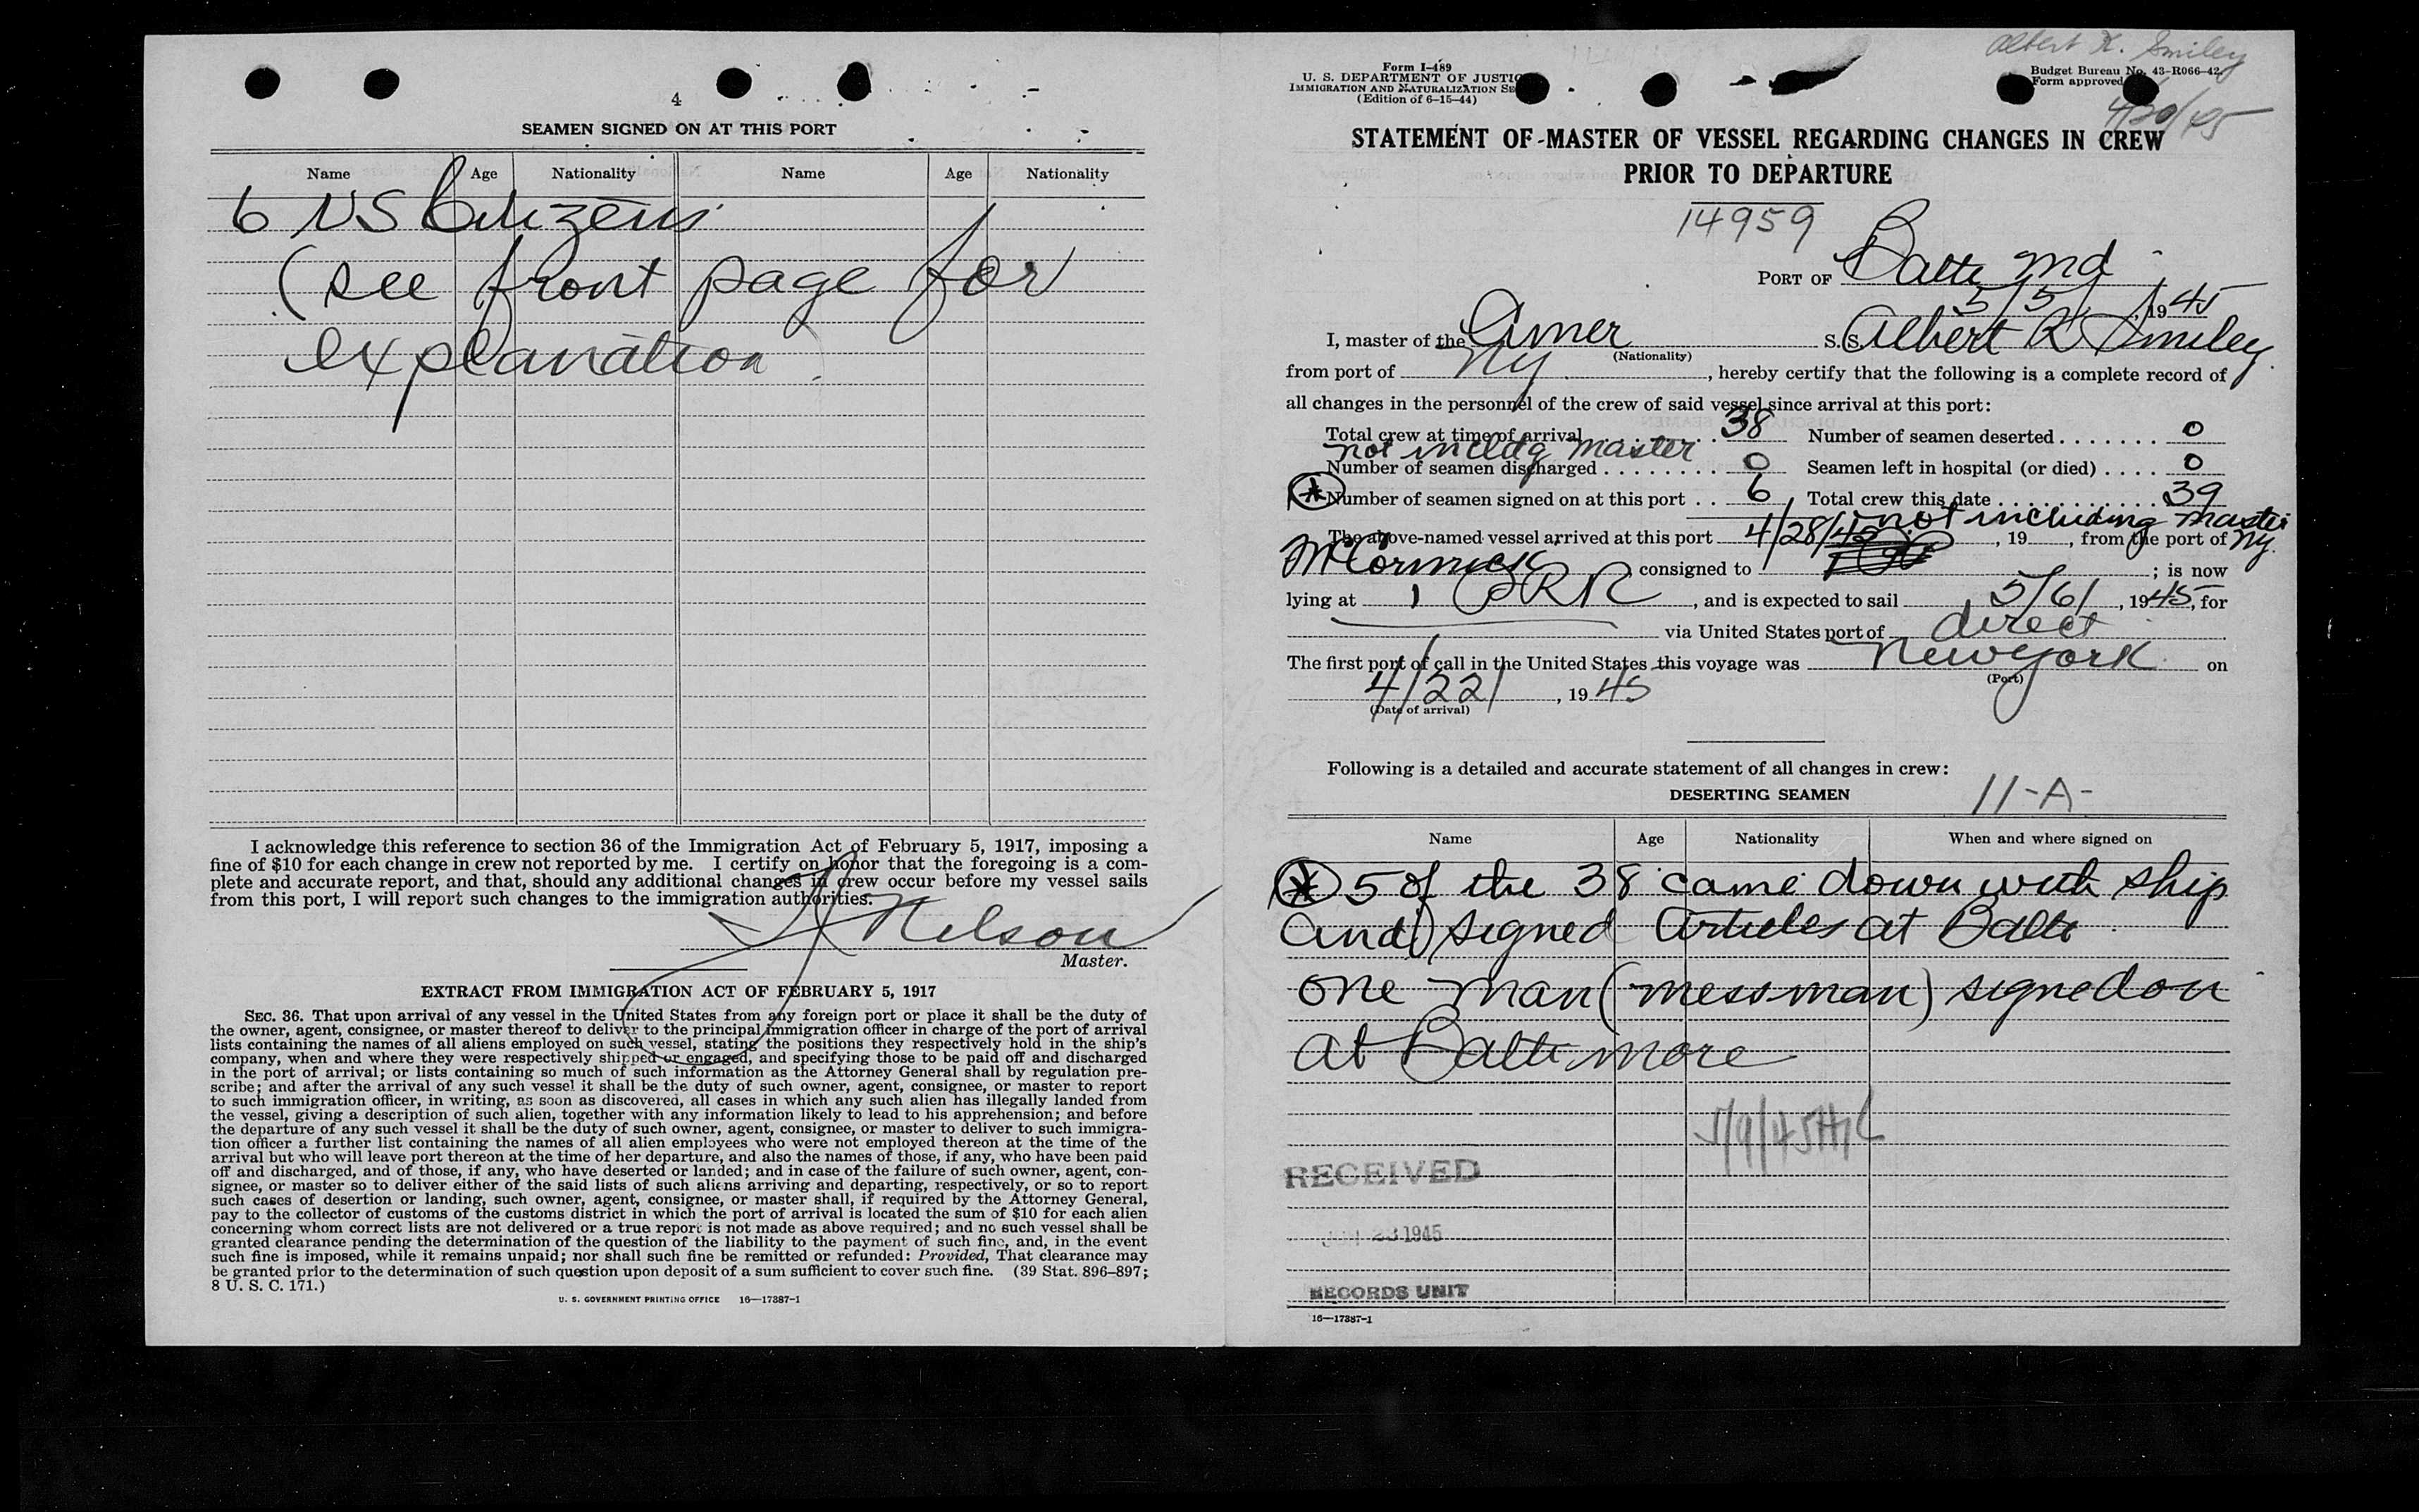 4
SEAMEN SIGNED ON AT THIS PORT
Name Age Nationality Name Age Nationality
6 US Citizens
(see front page for
explanation)
I acknowledge this reference to section 36 of the Immigration Act of February 5, 1917, imposing a
fine of $10 for each change in crew not reported by me. I certify on honor that the foregoing is a com-
plete and accurate report, and that, should any additional changes in crew occur before my vessel sails
from this port, I will report such changes to the immigration authorities.
Nelson
Master.
EXTRACT FROM IMMIGRATION ACT OF FEBRUARY 5, 1917
SEC. 36. That upon arrival of any vessel in the United States from any foreign port or place it shall be the duty of
the owner, agent, consignee, or master thereof to deliver to the principal immigration officer in charge of the port of arrival
lists containing the names of all aliens employed on such vessel, stating the positions they respectively hold in the ship's
company, when and where they were respectively shipped or engaged, and specifying those to be paid off and discharged
in the port of arrival; or lists containing so much of such information as the Attorney General shall by regulation pre-
scribe; and after the arrival of any such vessel it shall be the duty of such owner, agent, consignee, or master to report
to such immigration officer, in writing, as soon as discovered, all cases in which any such alien has illegally landed from
the vessel, giving a description of such alien, together with any information likely to lead to his apprehension; and before
the departure of any such vessel it shall be the duty of such owner, agent, consignee, or master to deliver to such immigra-
tion officer a further list containing the names of all alien employees who were not employed thereon at the time of the
arrival but who will leave port thereon at the time of her departure, and also the names of those, if any, who have been paid
off and discharged, and of those, if any, who have deserted or landed; and in case of the failure of such owner, agent, con-
signee, or master so to deliver either of the said lists of such aliens arriving and departing, respectively, or so to report
such cases of desertion or landing, such owner, agent, consignee, or master shall, if required by the Attorney General,
pay to the collector of customs of the customs district in which the port of arrival is located the sum of $10 for each alien
concerning whom correct lists are not delivered or a true report is not made as above required; and no such vessel shall be
granted clearance pending the determination of the question of the liability to the payment of such fine, and, in the event
such fine is imposed, while it remains unpaid; nor shall such fine be remitted or refunded: Provided, That clearance may
be granted prior to the determination of such question upon deposit of a sum sufficient to cover such fine. (39 Stat. 896–897;
8 U. S. C. 171.)
U. S. GOVERNMENT PRINTING OFFICE 16—17387-1
Albert K. Smiley
Form I-489
U. S. DEPARTMENT OF JUSTIC
IMMIGRATION AND NATURALIZATION SE
(Edition of 6-15-44)
Budget Bureau No. 43-R066-42.
Form approved
4/20/45
STATEMENT OF MASTER OF VESSEL REGARDING CHANGES IN CREW
PRIOR TO DEPARTURE
14959
PORT OF Balto Md
5/5/, 1945
I, master of the Amer S. S. Albert K Smiley
(Nationality)
from port of NY, hereby certify that the following is a complete record of
all changes in the personnel of the crew of said vessel since arrival at this port:
Total crew at time of arrival 38 Number of seamen deserted 0
not incldg master
Number of seamen discharged 0 Seamen left in hospital (or died) 0
* Number of seamen signed on at this port 6 Total crew this date 39
not including master
The above-named vessel arrived at this port 4/28/45, 19, from the port of NY.
McCormick consigned to ; is now
lying at 1 BRR, and is expected to sail 5/6/, 1945, for
via United States port of direct
The first port of call in the United States this voyage was New York on
(Port)
4/22/, 1945
(Date of arrival)
Following is a detailed and accurate statement of all changes in crew:
DESERTING SEAMEN 11-A-
Name Age Nationality When and where signed on
* 5 of the 38 came down with ship
and signed Articles at Balto
one man (messman) signed on
at Baltimore
5/9/45
RECEIVED
23 1945
RECORDS UNIT
16—17387-1